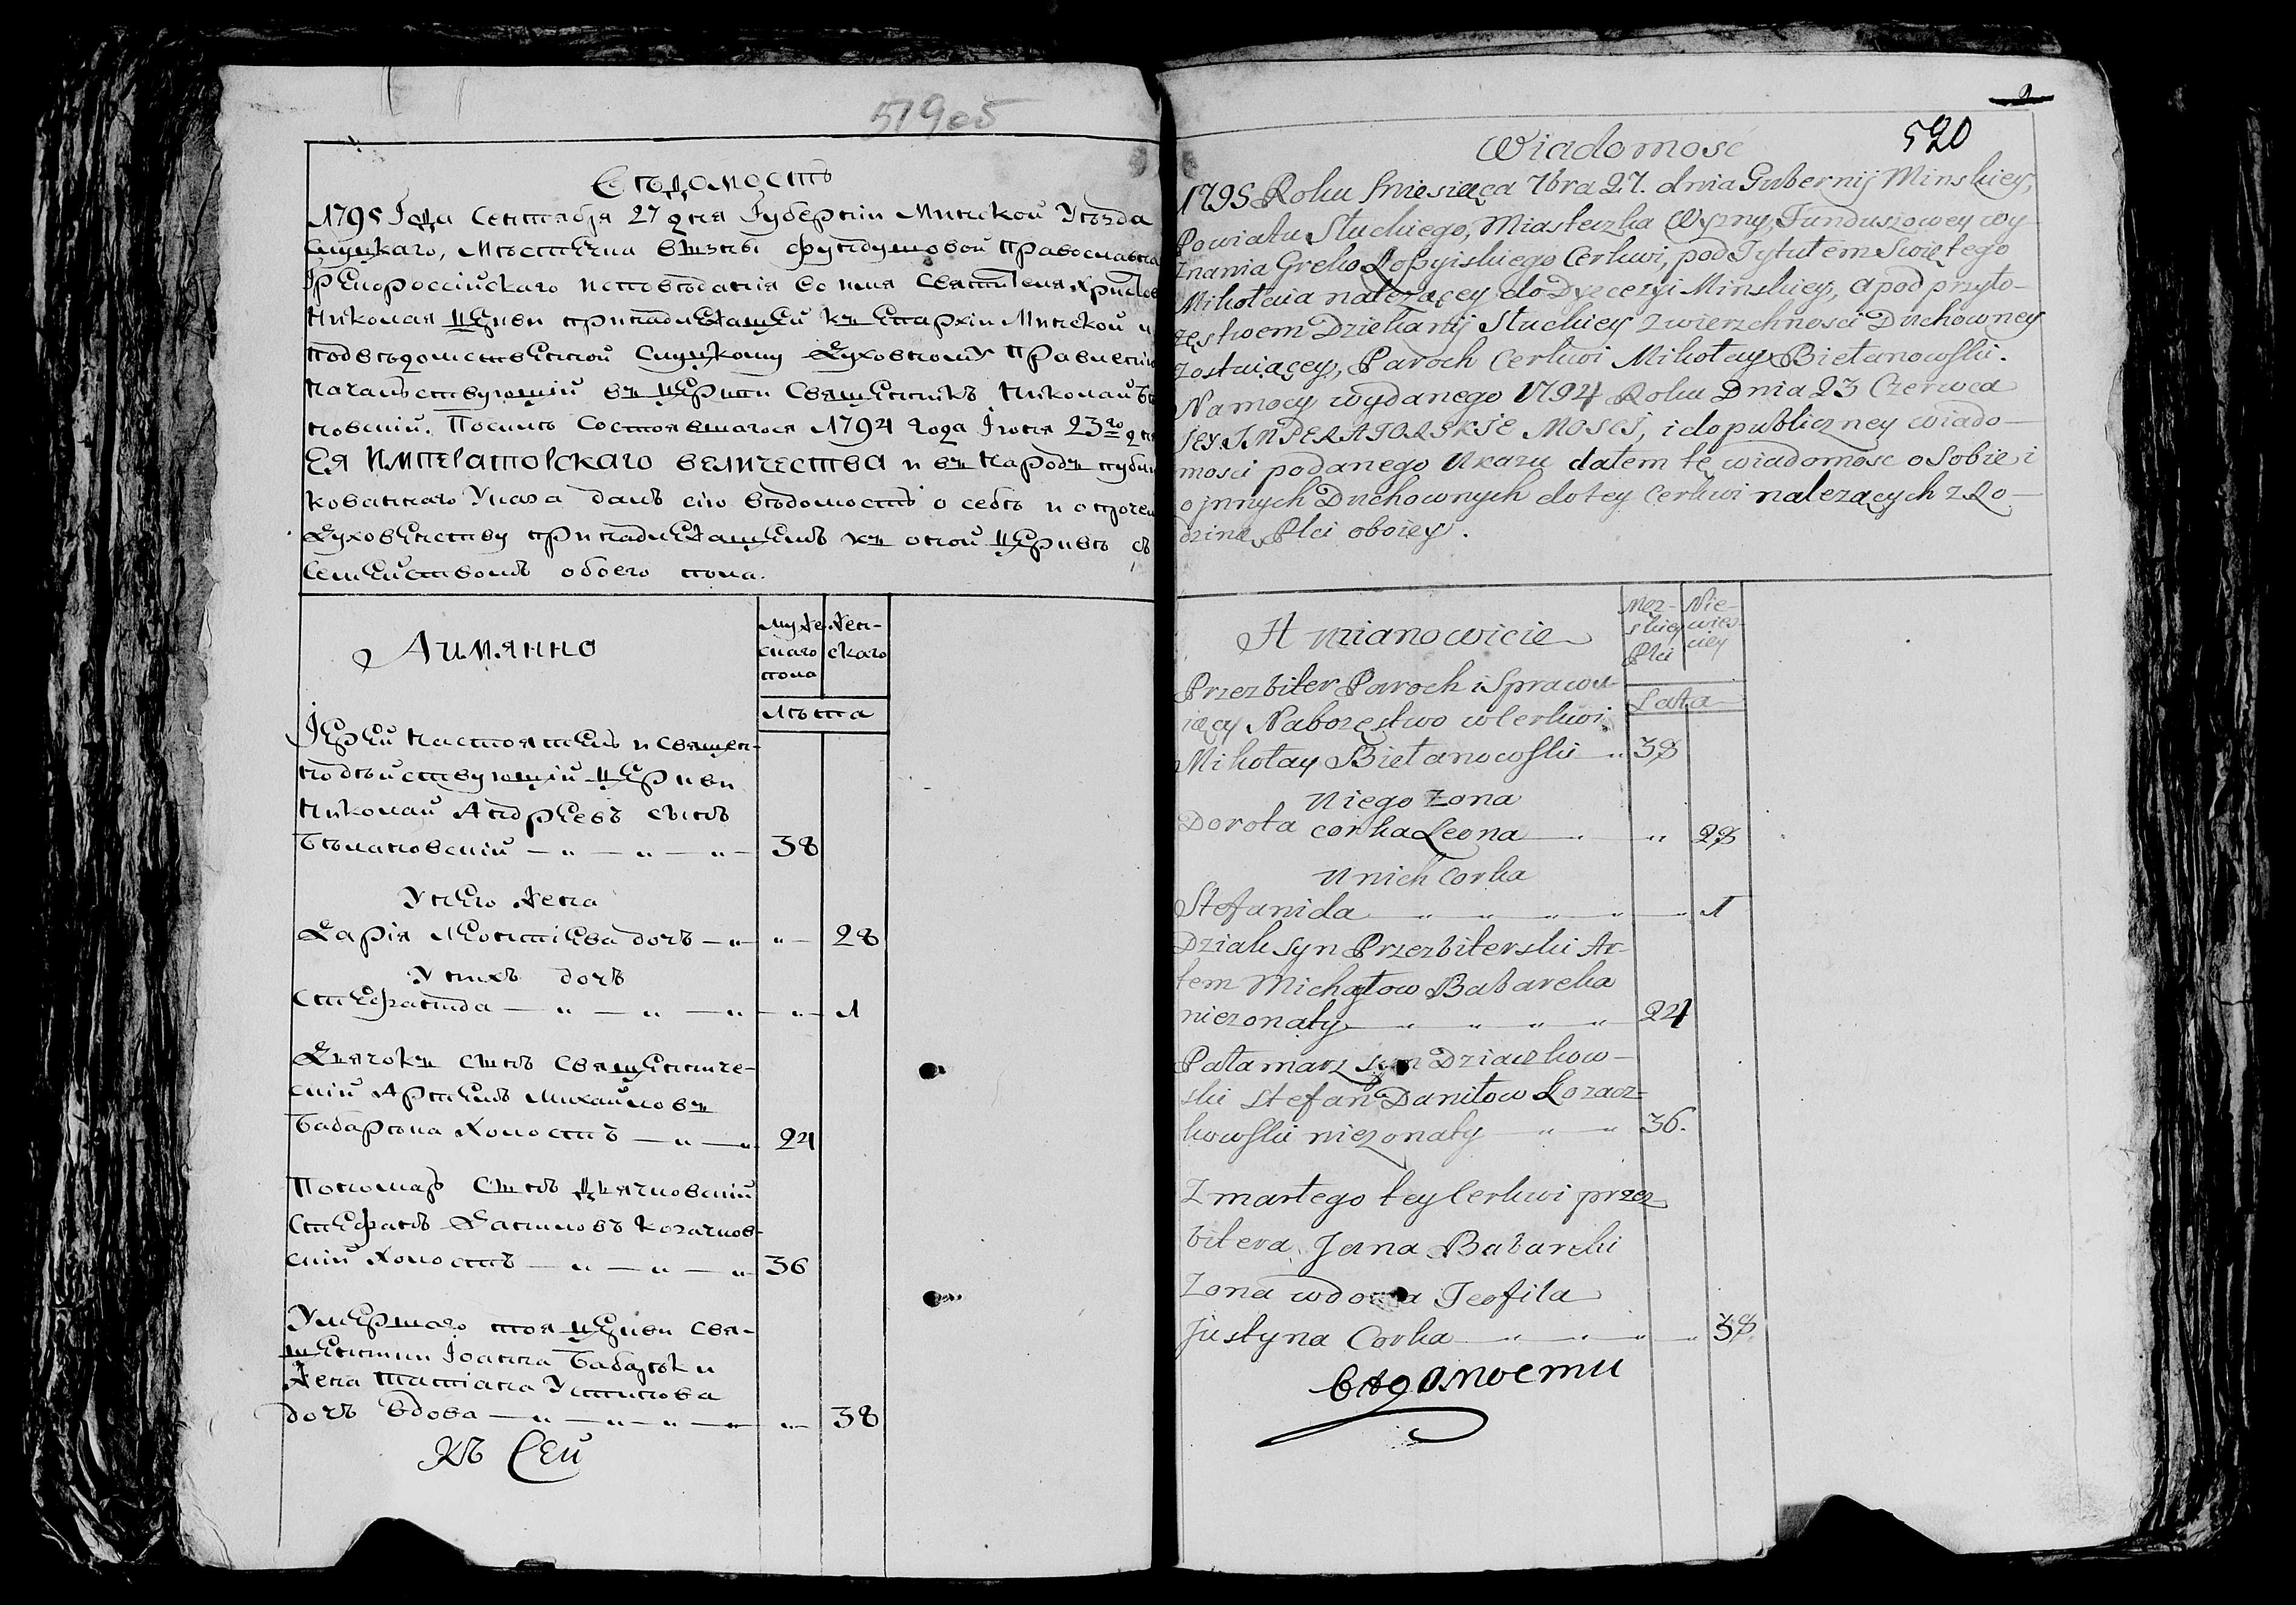 519об
Вѣдомость
1795 Года Сентября 27 дня Губерніи Минской Уѣзда
Слуцкаго, Мѣстечка Вызны фундушовой Православна
Грекороссійскаго исповѣданія во имя Святителя Христов
Николая Церкви принадлежащей къ Епархіи Минской и
подвѣдомственной Слуцкому Духовному Правлению
Началствующій въ Церкви Священникъ Николай Бѣ
новскій. Посилѣ Состоявшагося 1794 года Іюня 23го дня
ЕЯ ИМПЕРАТОРСКАГО ВЕЛИЧЕСТВА и въ народъ публи
кованнаго Указа далъ сію вѣдомость о себѣ и о прочем
Духовенству принадлежащемъ къ оной Церквѣ съ
Семействомъ обоего пола.
Аимянно
Муже скаго пола
Жен- скаго
Лѣта
Іерей настоятель и священ-
нодѣйствующій Церкви
Николай Андреевъ сынъ
Бѣлановскій — „ — „ — „ — 38
У него жена
Дарія Леонтіева дочь — „ — „ — 28
У нихъ дочь
Стефанида — „ — „ — „ — „ — 1
Дьячокъ сынъ священниче-
скій Артемъ Михайловъ
Бабарыка Холостъ — „ — „ 24
Пономарь Сынъ Дьячковскій
Стефанъ Данилов Козачков-
скій Холостъ — „ — „ — „ 36
Умершаго тоя Церкви Свя-
щенника Іоанна Бабарыки
Жена Татіана Устинова
дочь вдова — „ — „ — „ — „ — 38
Къ Сей
2
520
Wiadomosc
1795 Roku Miesiąca 7bra 27. dnia Gubernij Minskiey,
Powiatu Słuckiego, Miasteczka Wyzny, Funduszowey wy-
znania Greko Rossyiskiego Cerkwi, pod Tytułem Swiętego
Mikołaia należącey do Dyecezyi Minskiey, a pod przyło-
zęstwem Dziekanij Słuckiey Zwierzchnosci Duchowney
zostaiącey, Paroch Cerkwi Mikołay Biełanowski.
Na mocy wydanego 1794 Roku Dnia 23 Czerwca
JEY INPERATORSKIE MOSCI, i do publiczney wiado-
mosci podanego Ukazu dałem tę wiadomosc o Sobie i
o jnnych Duchownych do tey Cerkwi nalezących z Ro-
dziną Płci oboiey.
A mianowicie
Mez- skiey Płci
Nie- wies- ciey
Lata
Przezbiter Paroch i Sprawu-
iący Nabozęstwo w Cerkwi
Mikołay Biełanowski — „ 38
U niego zona
Dorota corka Leona — „ — „ 28
U nich corka
Stefanida — „ — „ — „ — „ — „ 1
Dziak syn Przezbiterski Ar-
tem Michałow Babareka
niezonaty — „ — „ — „ — „ 24
Patamarz syn Dziaczkow-
ski Stefan Daniłow Kozacz-
kowski niezonaty — „ — „ 36.
Zmarłego tey Cerkwi przez-
bitera Jana Babareki
Zona wdowa Teofila
Justyna Corka — „ — „ — „ — „ 38
Вѣдомости